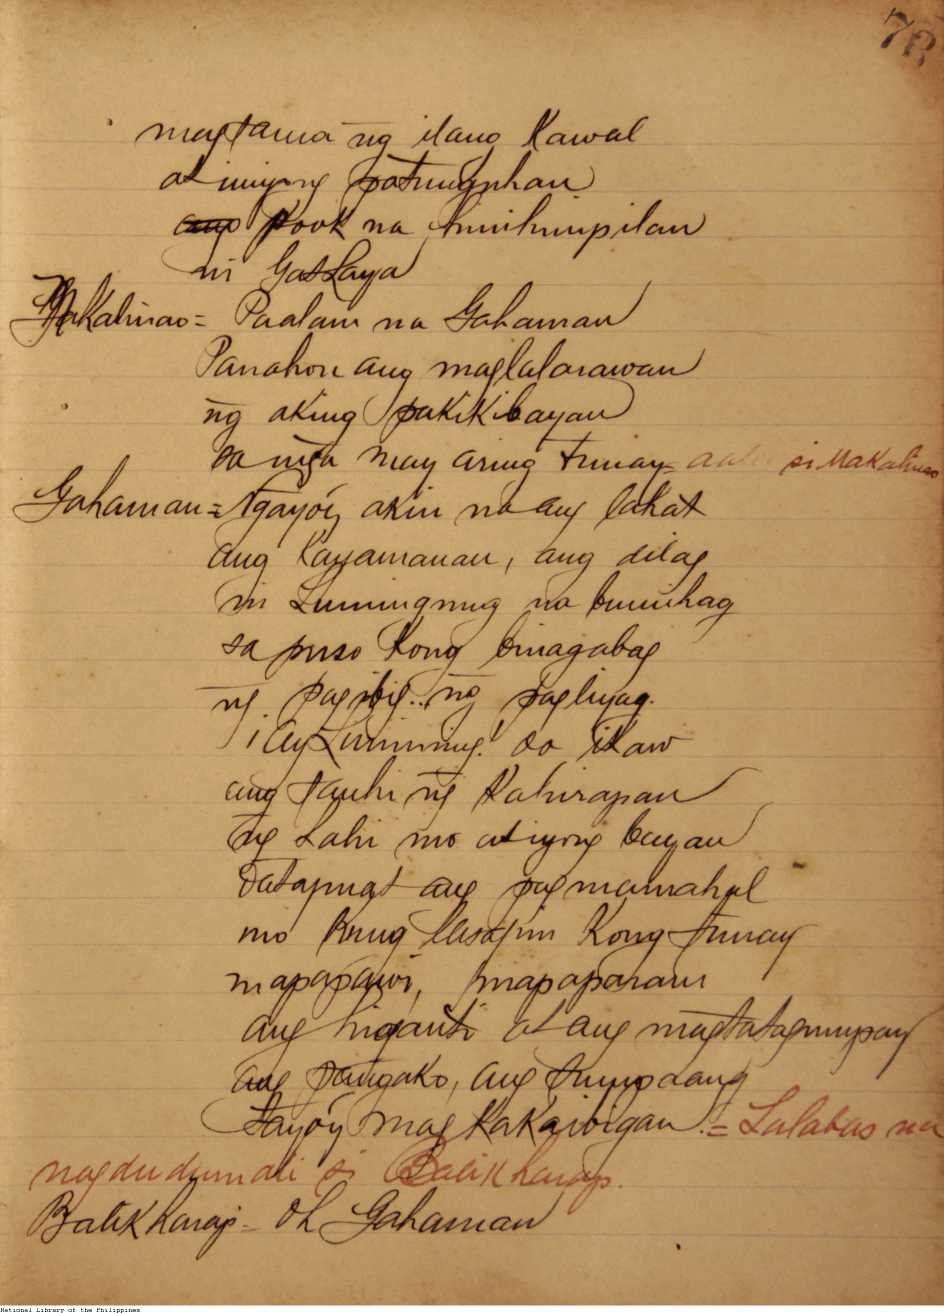 78
magtama ng ilang Kawal
at inyong patunguhan
ang pook na kinihimpilan
ni Gat Laya
Makalinao = Paalam na Gahaman
Panahon ang maglalarawan
ng aking pakikibayan
sa mga may aring tunay = si Makalinao
Gahaman = Ngayo'y akin na ang lahat
ang Kayamanan, ang dilag
ni Luningning na bumihag
sa puso Kong binagabag
ng pagibig... ng pagliyag.
¡Ay Luningning! sa ikaw
ang sanhi ng Kahirapan
ng Lahi mo at iyong bayan
Datapuat ang pagmamahal
mo kung kasapin Kong tunay
mapapawi, mapaparam
ang higanti at ang magtatagumpay
ang pangako, ang sumpaang
Tayo'y magkakaibigan. = Lalabas na
nagdudumali si Balikharap.
Balikharap - Oh Gahaman